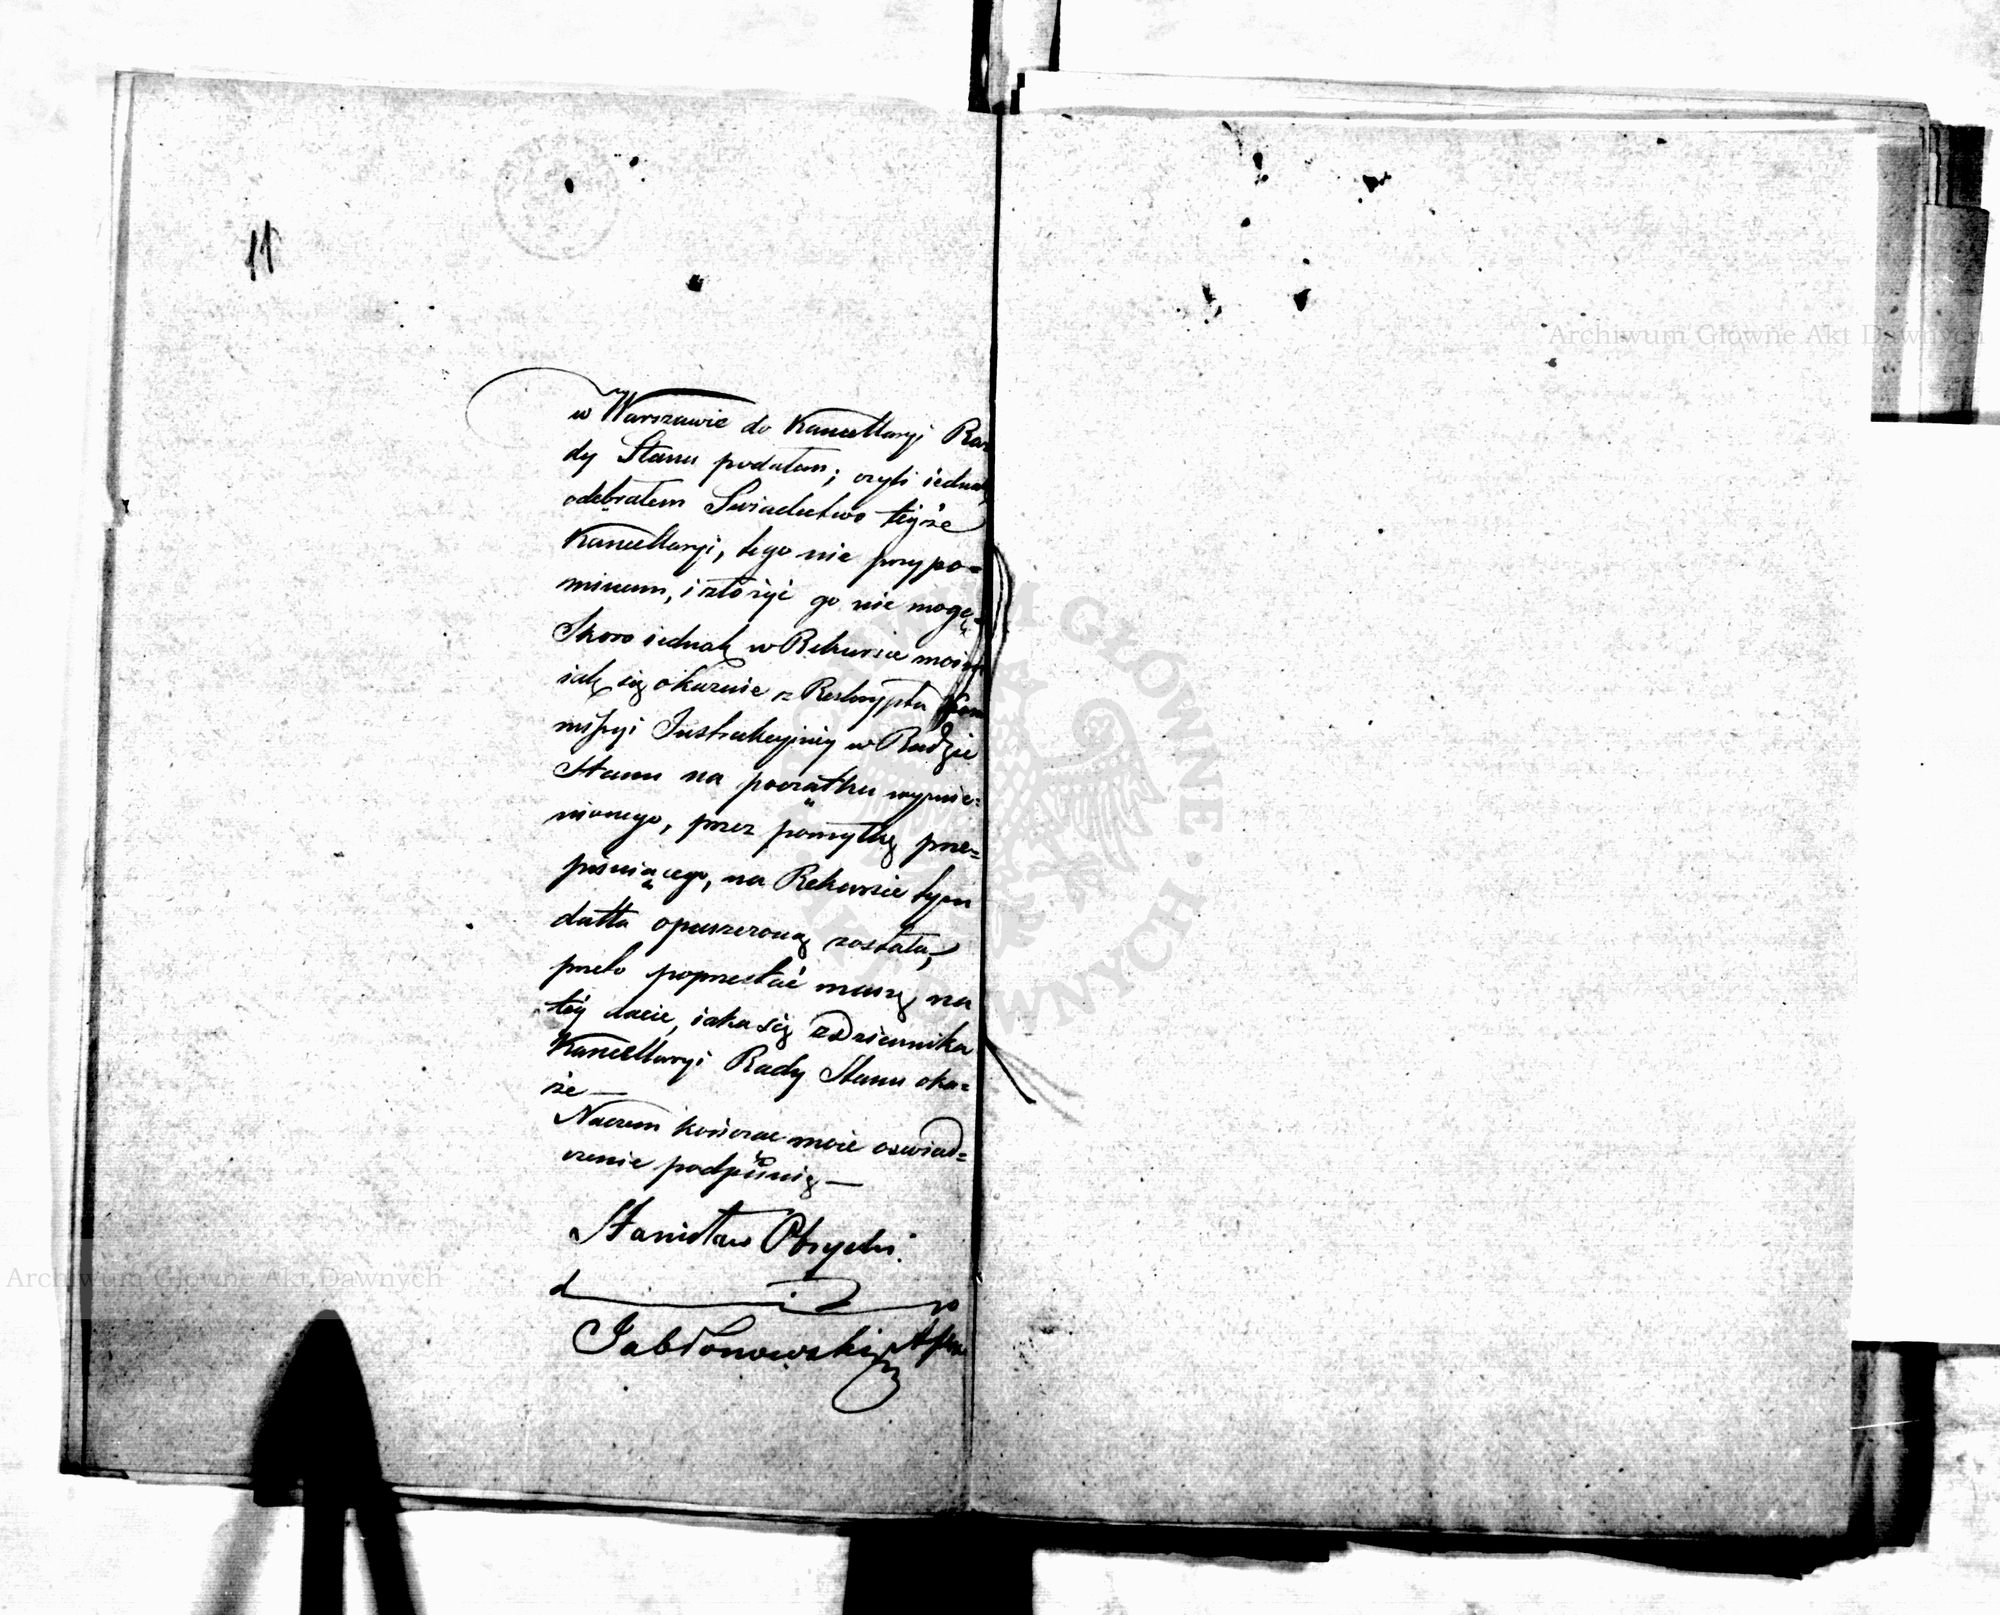 11
w Warszawie do Kancellaryi Ra
dy Stanu podałem; czyli iednak
odebrałem Swiadectwo teyże
Kancellaryi, tego nie przypo=
minam, i złożyć go nie mogę.
Skoro iednak w Rekursie moim
iak się okazuie z Reskryptu Kom
missyi Instrukcyiney w Radzie
Stanu na początku wymie=
nionego, przez pomyłkę prze=
pisuiącego, na Rekursie tym
datta opuszczoną została,
przeto poprzestać muszę na
téy dacie, iaka się z Dziennika
Kancellaryi Rady Stanu oka=
że —
Naczem kończąc moie oswiad=
czenie podpisuię —
Stanisław Obrycki
Jabłonowski
Archiwum Główne Akt Dawnych
Archiwum Główne Akt Dawnych
ARCHIWUM GŁÓWNE AKT DAWNYCH